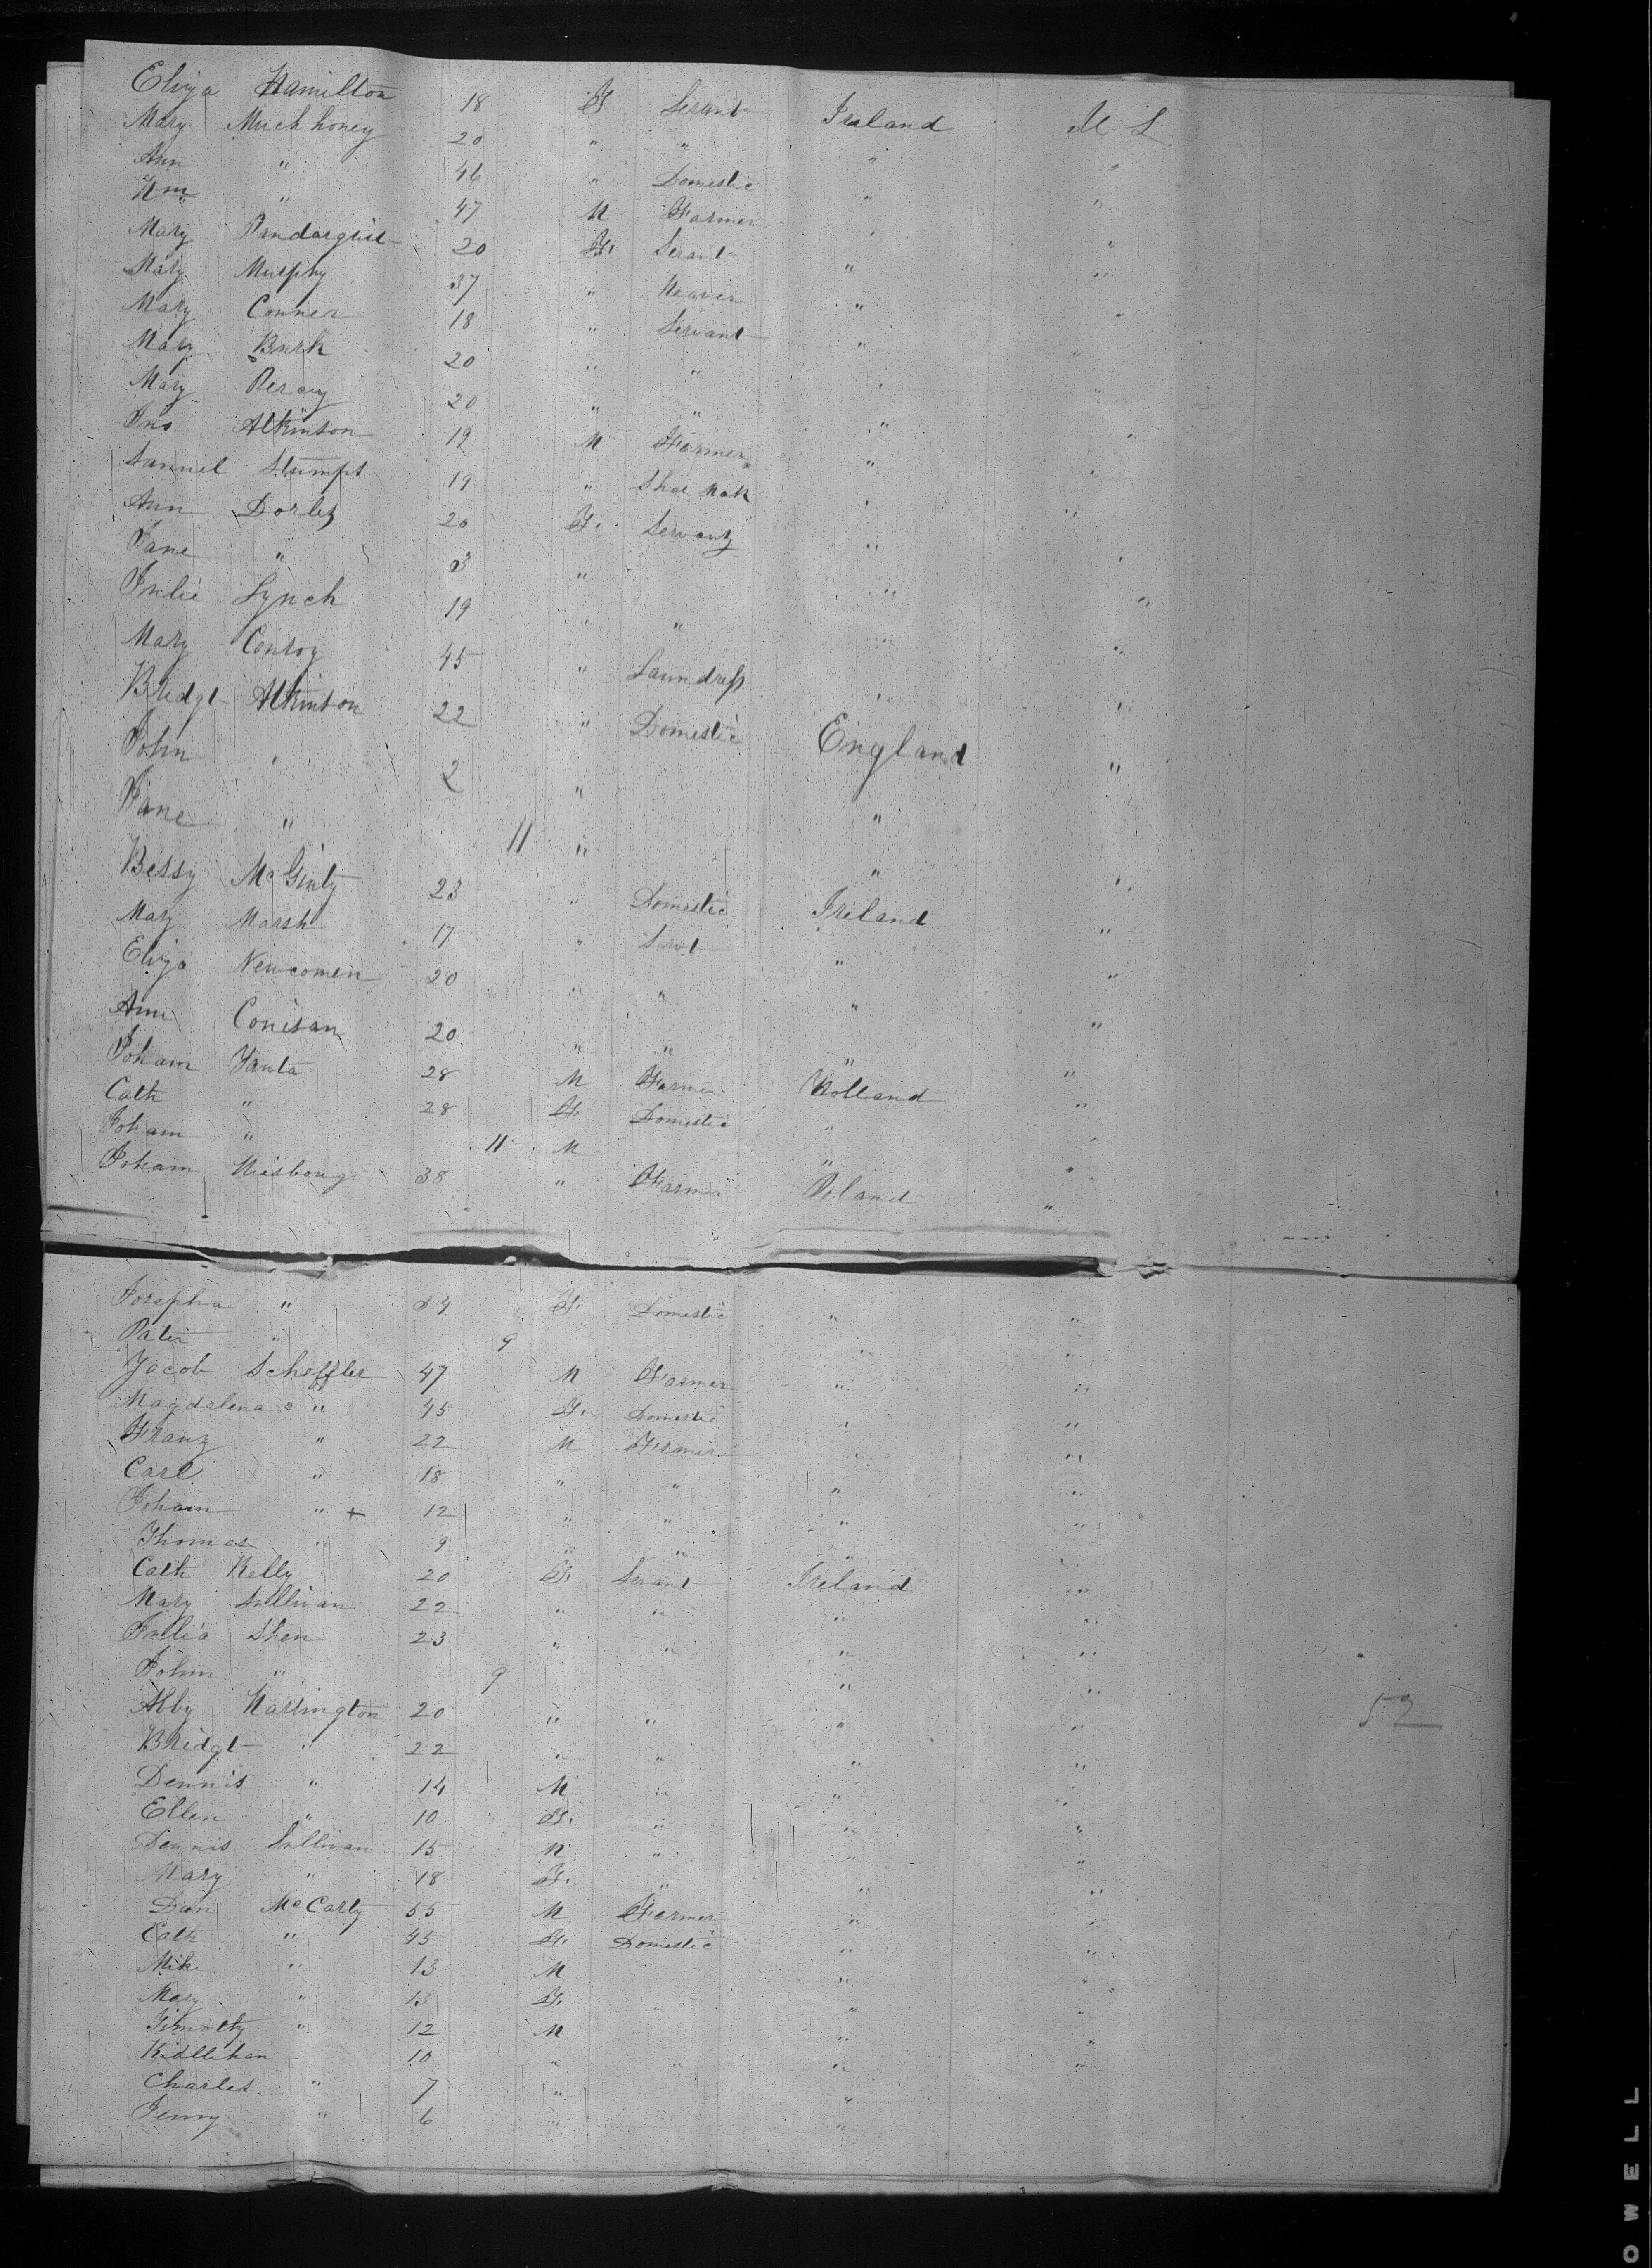 Eliza Hamilton 18 F Serant Ireland U S
Mary Muckhoney 20 " " " "
Ann " 46 " Domestic " "
Wm " 47 M Farmer " "
Mary Pendargrist 20 F. Serant " "
Mary Murphy 37 " Weaver " "
Mary Conner 18 " Servant " "
Mary Burk 20 " " " "
Mary Percy 20 " " " "
Jno Atkinson 19 M Farmer " "
Samuel Stumpt 19 " Shoe Mak " "
Ann Dorley 20 F. Servant " "
Jane " 3 " " "
Julie Lynch 19 " " " "
Mary Conroy 45 " Laundress " "
Bridgt Atkinson 22 " Domestic England "
John " 2 " " "
Jane " 11 " " "
Bessy McGinty 23 " Domestic Ireland "
Mary Marsh 17 " Servt " "
Eliza Newcomen 20 " " " "
Ann Conisan 20 " " " "
Joham Janta 28 M Farmer Holland "
Cath " 28 F. Domestic " "
Joham " 11 M " "
Joham Nisbong 38 " Farmer Poland "
Josepha " 34 F. Domestic " "
Pater " 9 " "
Jacob Scheffler 47 M Farmer " "
Magdalena " 45 F. Domestic " "
Franz " 22 M Farmer " "
Carl " 18 " " " "
Joham " + 12 " " " "
Thomas " 9 " " " "
Cath Kelly 20 F. Servant Ireland "
Mary Sullivan 22 " " " "
Julia Shea 23 " " " "
John " 9 " "
Abby Harrington 20 " " " " 52
Bridgt " 22 " " " "
Dennis " 14 M " " "
Ellen " 10 F. " " "
Dennis Sullivan 15 M " " "
Mary " 18 F. " " "
Dan McCarty 55 M Farmer " "
Cath " 45 F. Domestic " "
Mike " 13 M " "
Mary " 13 F. " "
Timothy " 12 M " "
10 " " " "
Charles " 7 " "
Jenny " 6 " "
OWELL